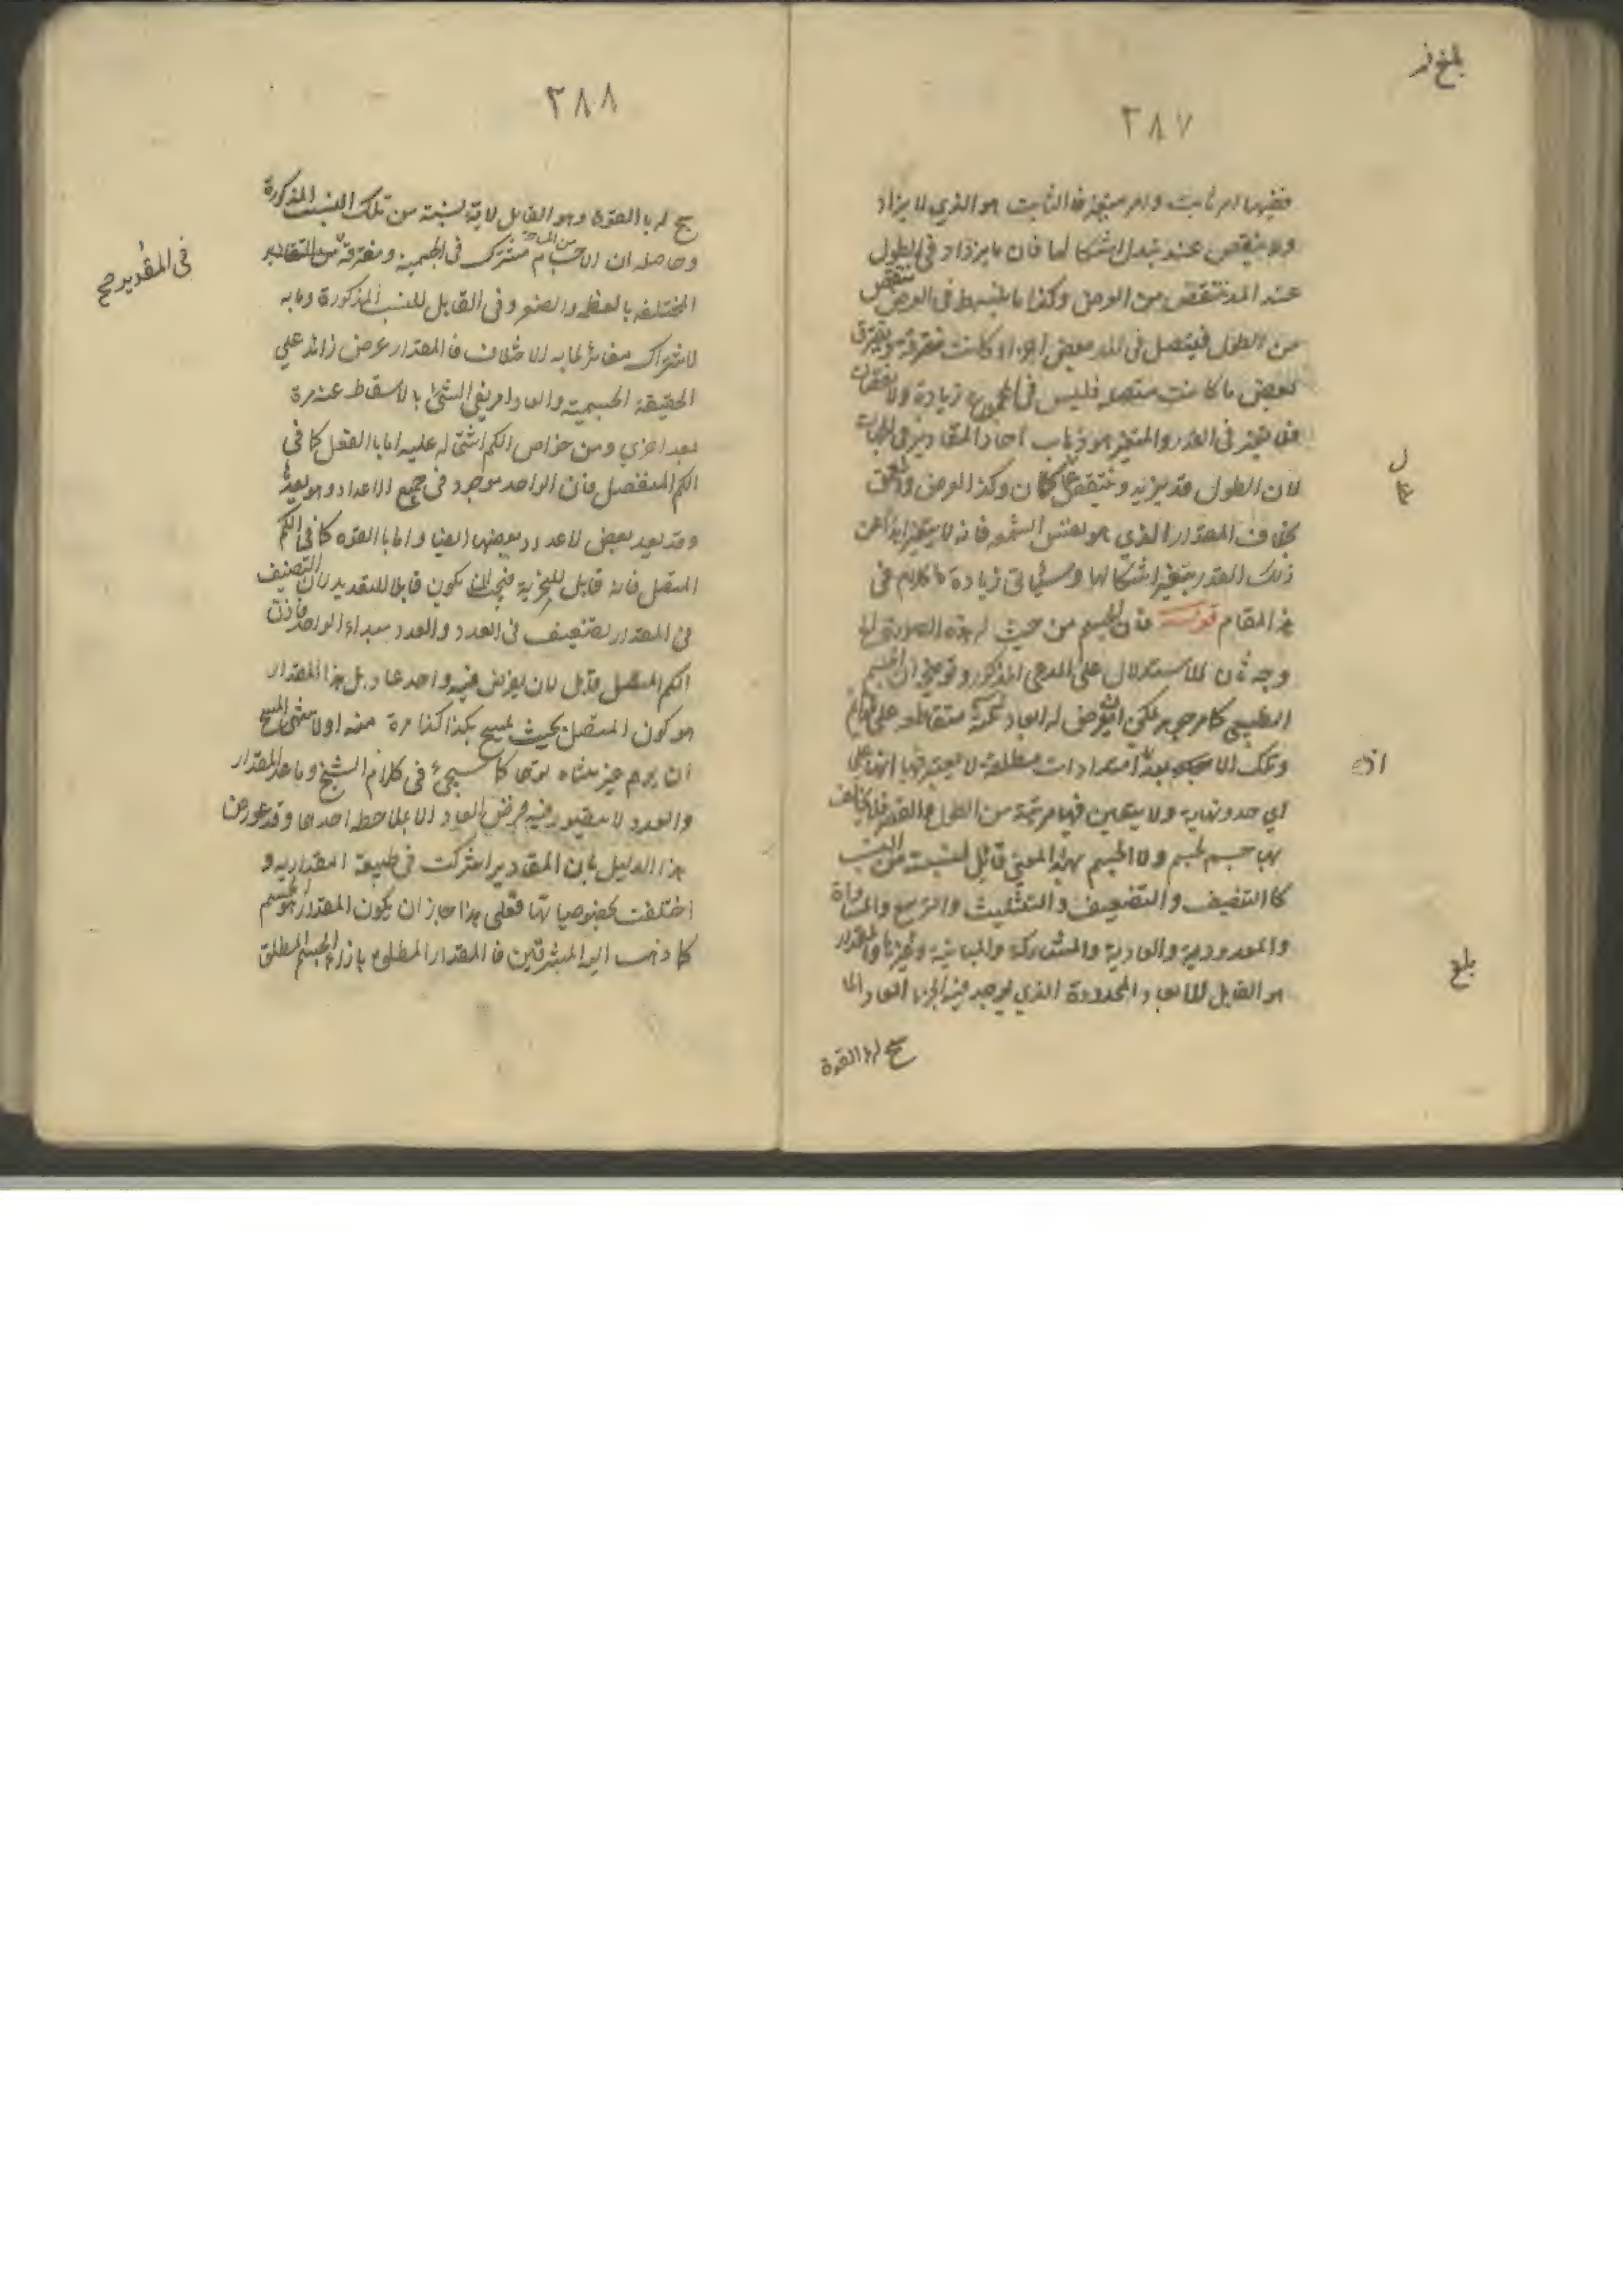 بلغ
٢٨٧
ففيها امر ثابت وامر متغير فالثابت هو الذي لا يزاد
ولا ينقص عند تبدل اشكالها فان ما يزداد في الطول
عند المد ينتقص من العرض وكذا ما ينبسط في العرض ينتقص
من الطول فيتصل في المد بعض اجزاء كانت متفرقة ويفترق
بعض ما كانت متصلة فليس في المجموع زيادة ولا نقصان
في القدر والمتغير هو ذهاب احاد المقادير في الجهات
لان الطول قد يزيد وينتقص كما كان وكذا العرض والعمق
بخلاف المقدار الذي هو لنفس الشمعة فانه لا يتغير ابدا عن
ذلك القدر بتغير اشكالها وسياتي زيادة كلام في
هذا المقام قوله فان الجسم من حيث له هذه الصورة الخ
وجه ثان للاستدلال على المدعى المذكور وتوضيحه ان الجسم
الطبيعي كما مر جوهر يمكن ان يفرض له ابعاد ثلثة متقاطعة على قوائم
وتلك الابعاد امتدادات مطلقة لا يعتبر فيها انها على
اي حد ونهاية ولا يتعين فيها مرتبة من الطول والقصر فلا يخالف
بها جسم لجسم ولا الجسم بهذا المعنى قابل لنسبة من النسب
كالتنصيف والتضعيف والتثليث والتربيع والمساواة
والمعدودية والعادية والمشاركة والمباينة وغيرها والمقدار
هو القابل للابعاد المحدودة الذي يوجد فيه الجزء العاد اما
بلغ
٢٨٨
بالقوة وهو القابل لاية نسبة من تلك النسب المذكورة
وحاصله ان الاجسام مشترك في الجسمية ومفترقة من المقادير
في المقادير صح
المختلفة بالعظم والصغر وفي القابل للنسب المذكورة وما به
الاشتراك مغاير لما به الاختلاف فالمقدار عرض زائد على
الحقيقة الجسمية والعاد امر يفني الشئ بالاسقاط عنه مرة
بعد اخرى ومن خواص الكم اشتماله عليه اما بالفعل كما في
الكم المنفصل فان الواحد موجود في جميع الاعداد وهو يعدها
وقد يعد بعض الاعداد بعضها ايضا واما بالقوة كما في الكم
المتصل فانه قابل للتجزية فيجب ان يكون قابلا للتقدير لان التنصيف
في المقدار تضعيف في العدد والعدد مبداه الواحد فاذن
الكم المتصل قابل لان يفرض فيه واحد عاد بل هذا المقدار
هو كون المتصل بحيث يمسح بكذا كذا مرة
كما سيجئ في كلام الشيخ وما عدا المقدار
والعدد لا يتصور فيه فرض العاد الا بملاحظة احدهما وقد عورض
هذا الدليل بان المقادير اشتركت في طبيعة المقدارية و
اختلفت بخصوصياتها فعلى هذا جاز ان يكون المقدار هو الجسم
كما ذهب اليه المشرقيين فالمقدار المطلق بازاء الجسم المطلق